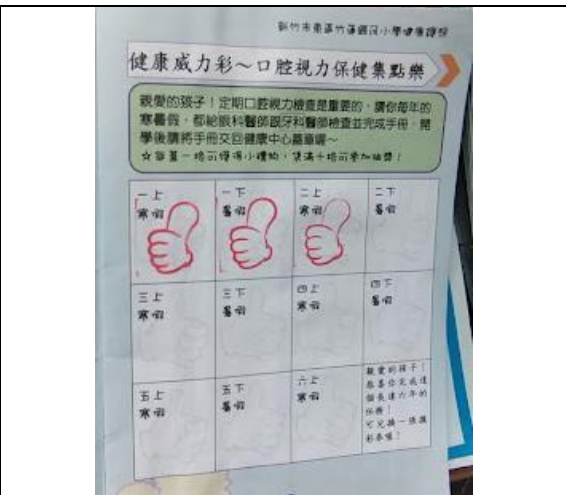 新竹市東區竹蓮國民小學健康護照
健康威力彩～口腔視力保健集點樂
親愛的孩子！定期口腔視力檢查是重要的，請你每年的
寒暑假，都給眼科醫師跟牙科醫師檢查並完成手冊，開
學後請將手冊交回健康中心蓋章喔～
☆每蓋一格可獲得小禮物，集滿十格可參加抽獎！
一上
寒假
一下
暑假
二上
寒假
二下
暑假
三上
寒假
三下
暑假
四上
寒假
四下
暑假
五上
寒假
五下
暑假
六上
寒假
親愛的孩子！
恭喜你完成這
個長達六年的
任務！
可兌換一張摸
彩券喔！